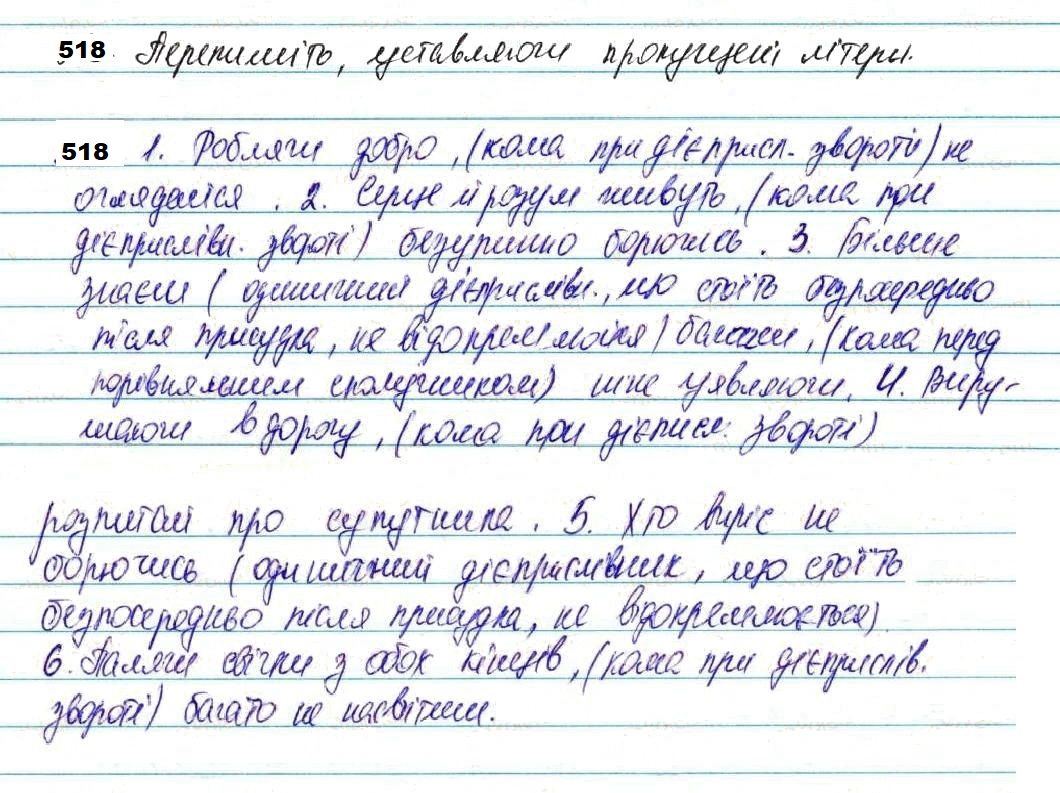 518 Перепишіть, уставляючи пропущені літери.
518 1. Роблячи добро, (кома при дієприсл. звороті) не
оглядайся. 2. Серце й розум живуть, (кома при
дієприслівн. звороті) безупинно борючись. 3. Більше
знаєш (одиничний дієприслівн., що стоїть безпосередньо
після присудка, не відокремлюється) бачачи, (кома перед
порівняльним сполучником) ніж уявляючи. 4. Виру-
шаючи в дорогу, (кома при дієприсл. звороті)
розпитай про супутника. 5. Хто виріс не
борючись (одиничний дієприслівник, що стоїть
безпосередньо після присудка, не відокремлюється)
6. Палячи свічки з обох кінців, (кома при дієприслів.
звороті) багато не насвітиш.